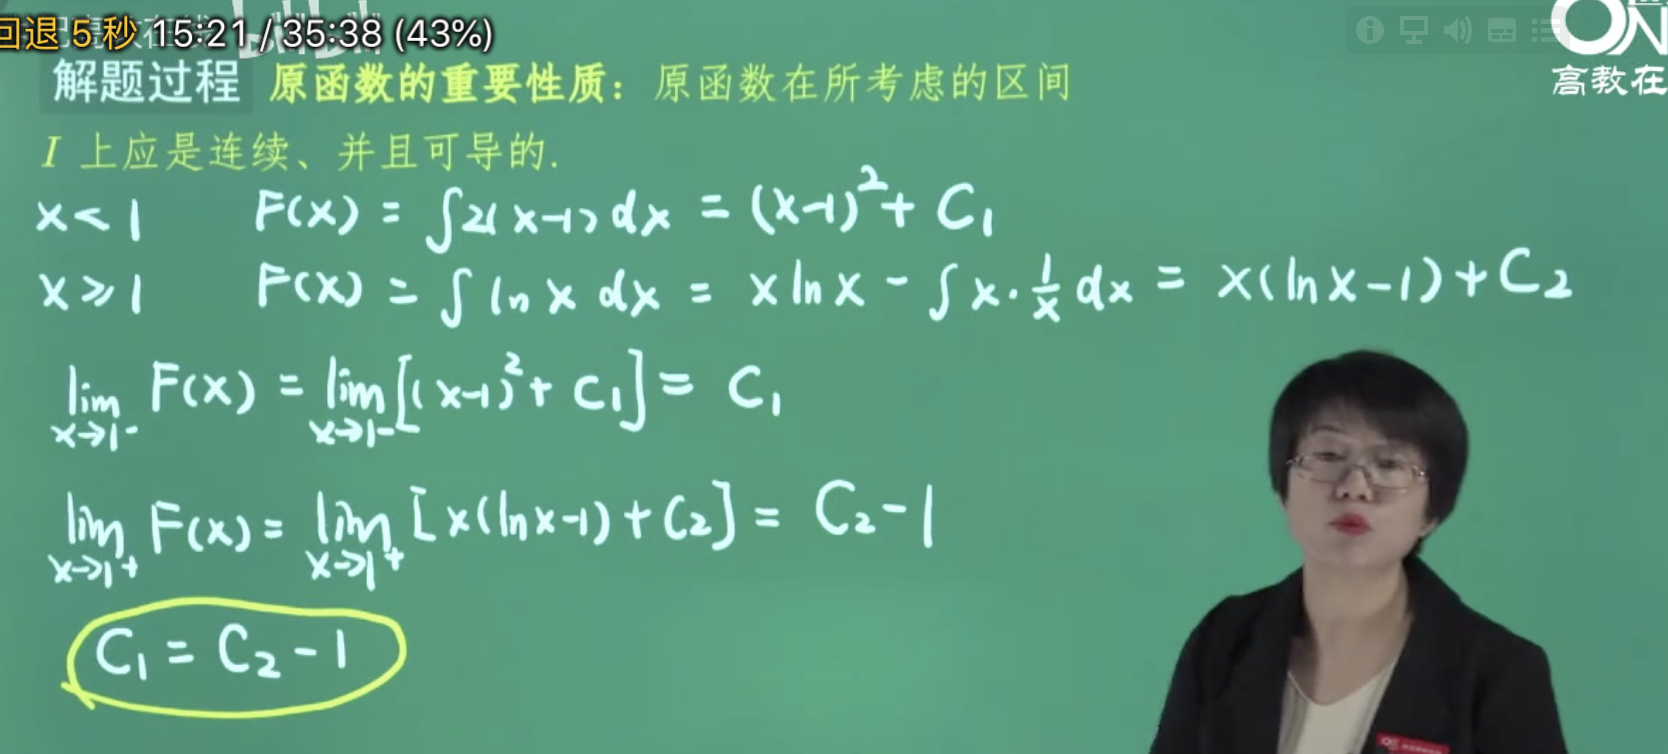 回退 5秒 15:21 / 35:38 (43%)
ON
高教在
解题过程 原函数的重要性质：原函数在所考虑的区间
I 上应是连续、并且可导的.
x < 1 F(x) = ∫2(x-1)dx = (x-1)² + C₁
x ≥ 1 F(x) = ∫ ln x dx = x ln x - ∫ x · 1/x dx = x(ln x - 1) + C₂
lim x→1⁻ F(x) = lim x→1⁻ [(x-1)² + C₁] = C₁
lim x→1⁺ F(x) = lim x→1⁺ [x(ln x - 1) + C₂] = C₂ - 1
C₁ = C₂ - 1